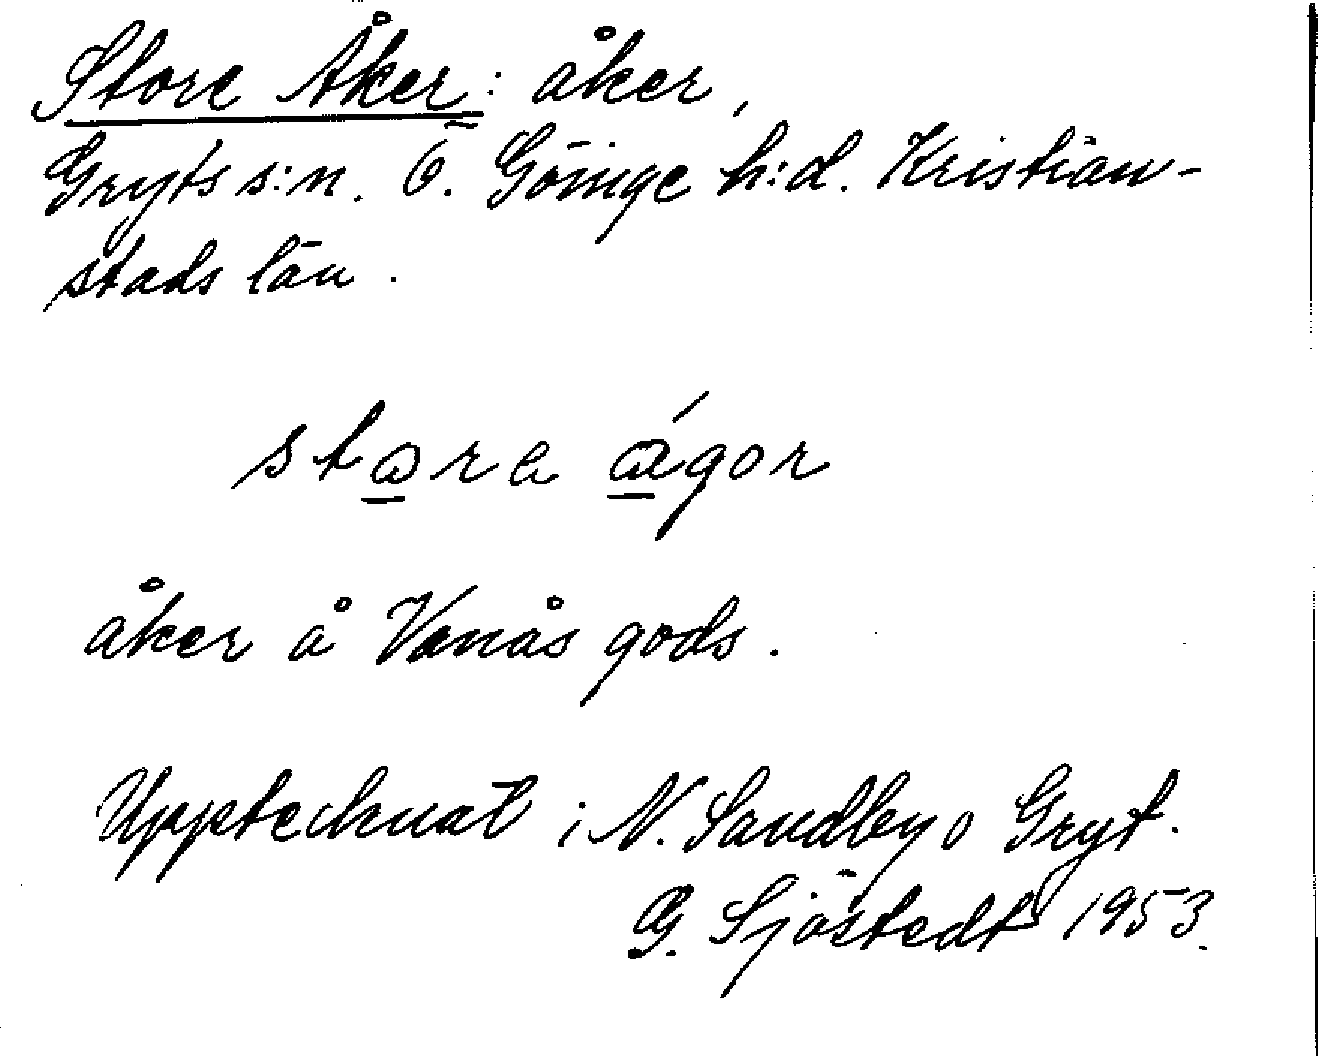 Store Åker: åker,
Gryts s:n. Ö. Göinge h:d. Kristian-
stads län.
åker å Vanås gods.
Upptecknat i N. Sandby o Gryt.
G. Sjöstedt 1953.